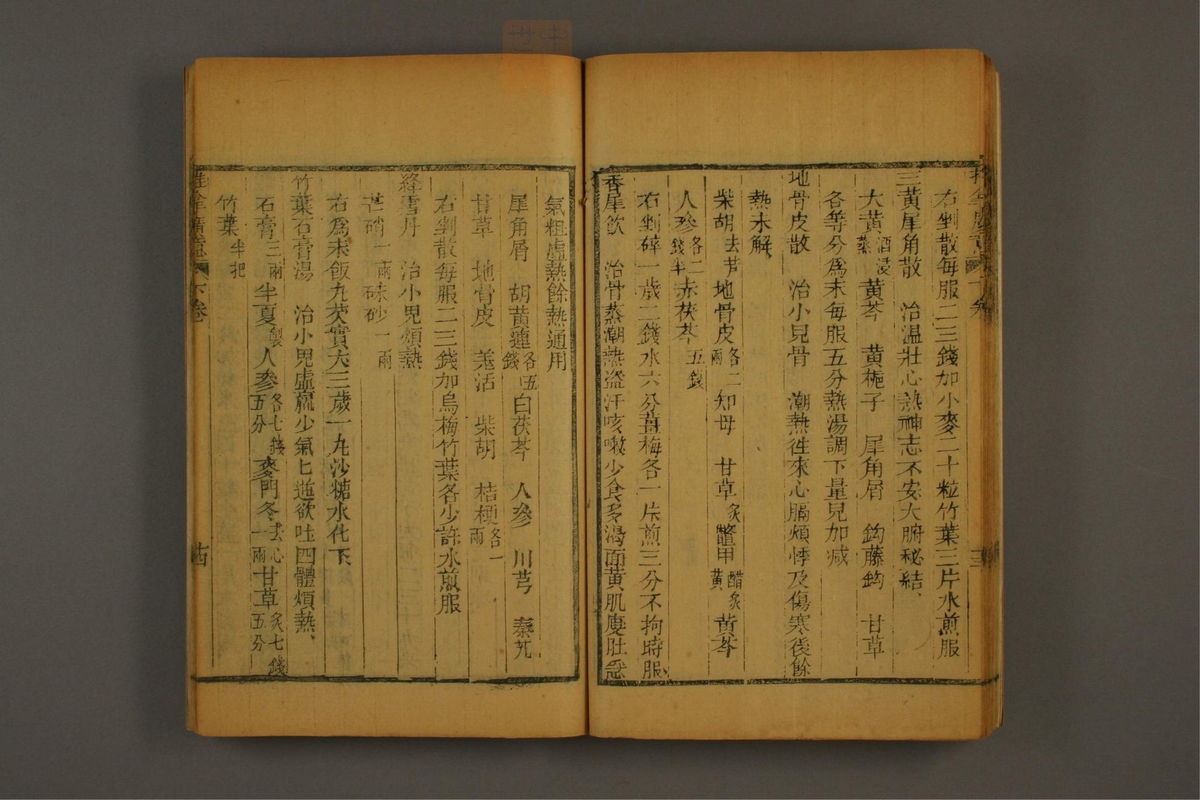 右剉散每服二三錢加小麥二十粒竹葉三片水煎服
三黃犀角散　治温壯心熱神志不安大腑秘結
大黃酒浸蒸　黃芩　黃梔子　犀角屑　鈎藤鈎　甘草
各等分爲末每服五分熱湯調下量兒加减
地骨皮散　治小兒骨　潮熱徃來心膈煩悸及傷寒後餘
熱未解
柴胡去芦　地骨皮各二兩　知母　甘草炙　鼈甲醋炙黃　黃芩
人參各二錢半　赤茯苓五錢
右剉碎一歲二錢水六分薑梅各一片煎三分不拘時服
香犀飲　治骨蒸潮熱盗汗咳嗽少食多渴面黃肌瘦肚急
氣粗虛熱餘熱通用
犀角屑　胡黃連各五錢　白茯苓　人參　川芎　秦艽
甘草　地骨皮　羗活　柴胡　桔梗各一兩
右剉散每服二三錢加烏梅竹葉各少許水煎服
絳雪丹　治小兒煩熱
芒硝一兩　硃砂一兩
右爲末飯丸芡實大三歲一丸沙糖水化下
竹葉石膏湯　治小兒虛羸少氣匕逆欲吐四體煩熱
石膏三兩　半夏製　人參各七錢五分　麥門冬去心一兩　甘草炙七錢五分
竹葉半把
下卷
十四